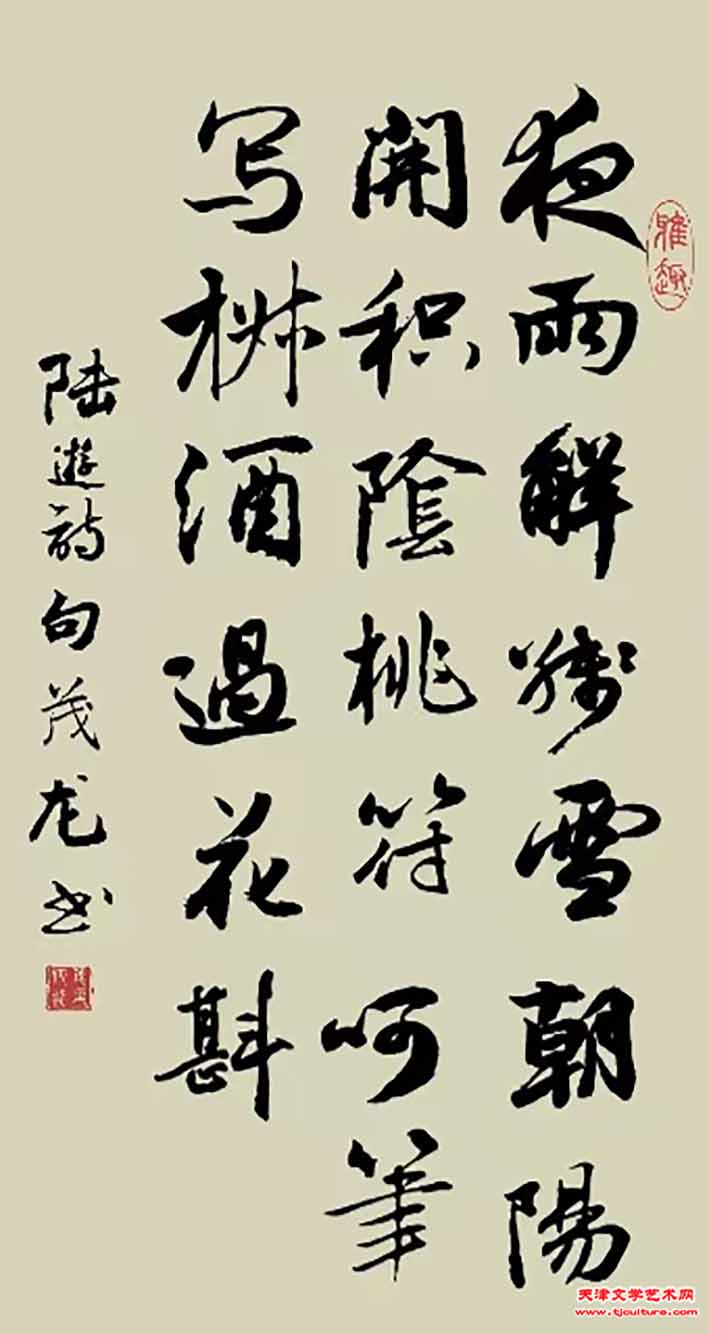 雅趣
夜雨解残雪朝陽
開积陰桃符呵筆
写椒酒過花斟
陆遊詩句茂龙书
天津文学艺术网
www.tjculture.com